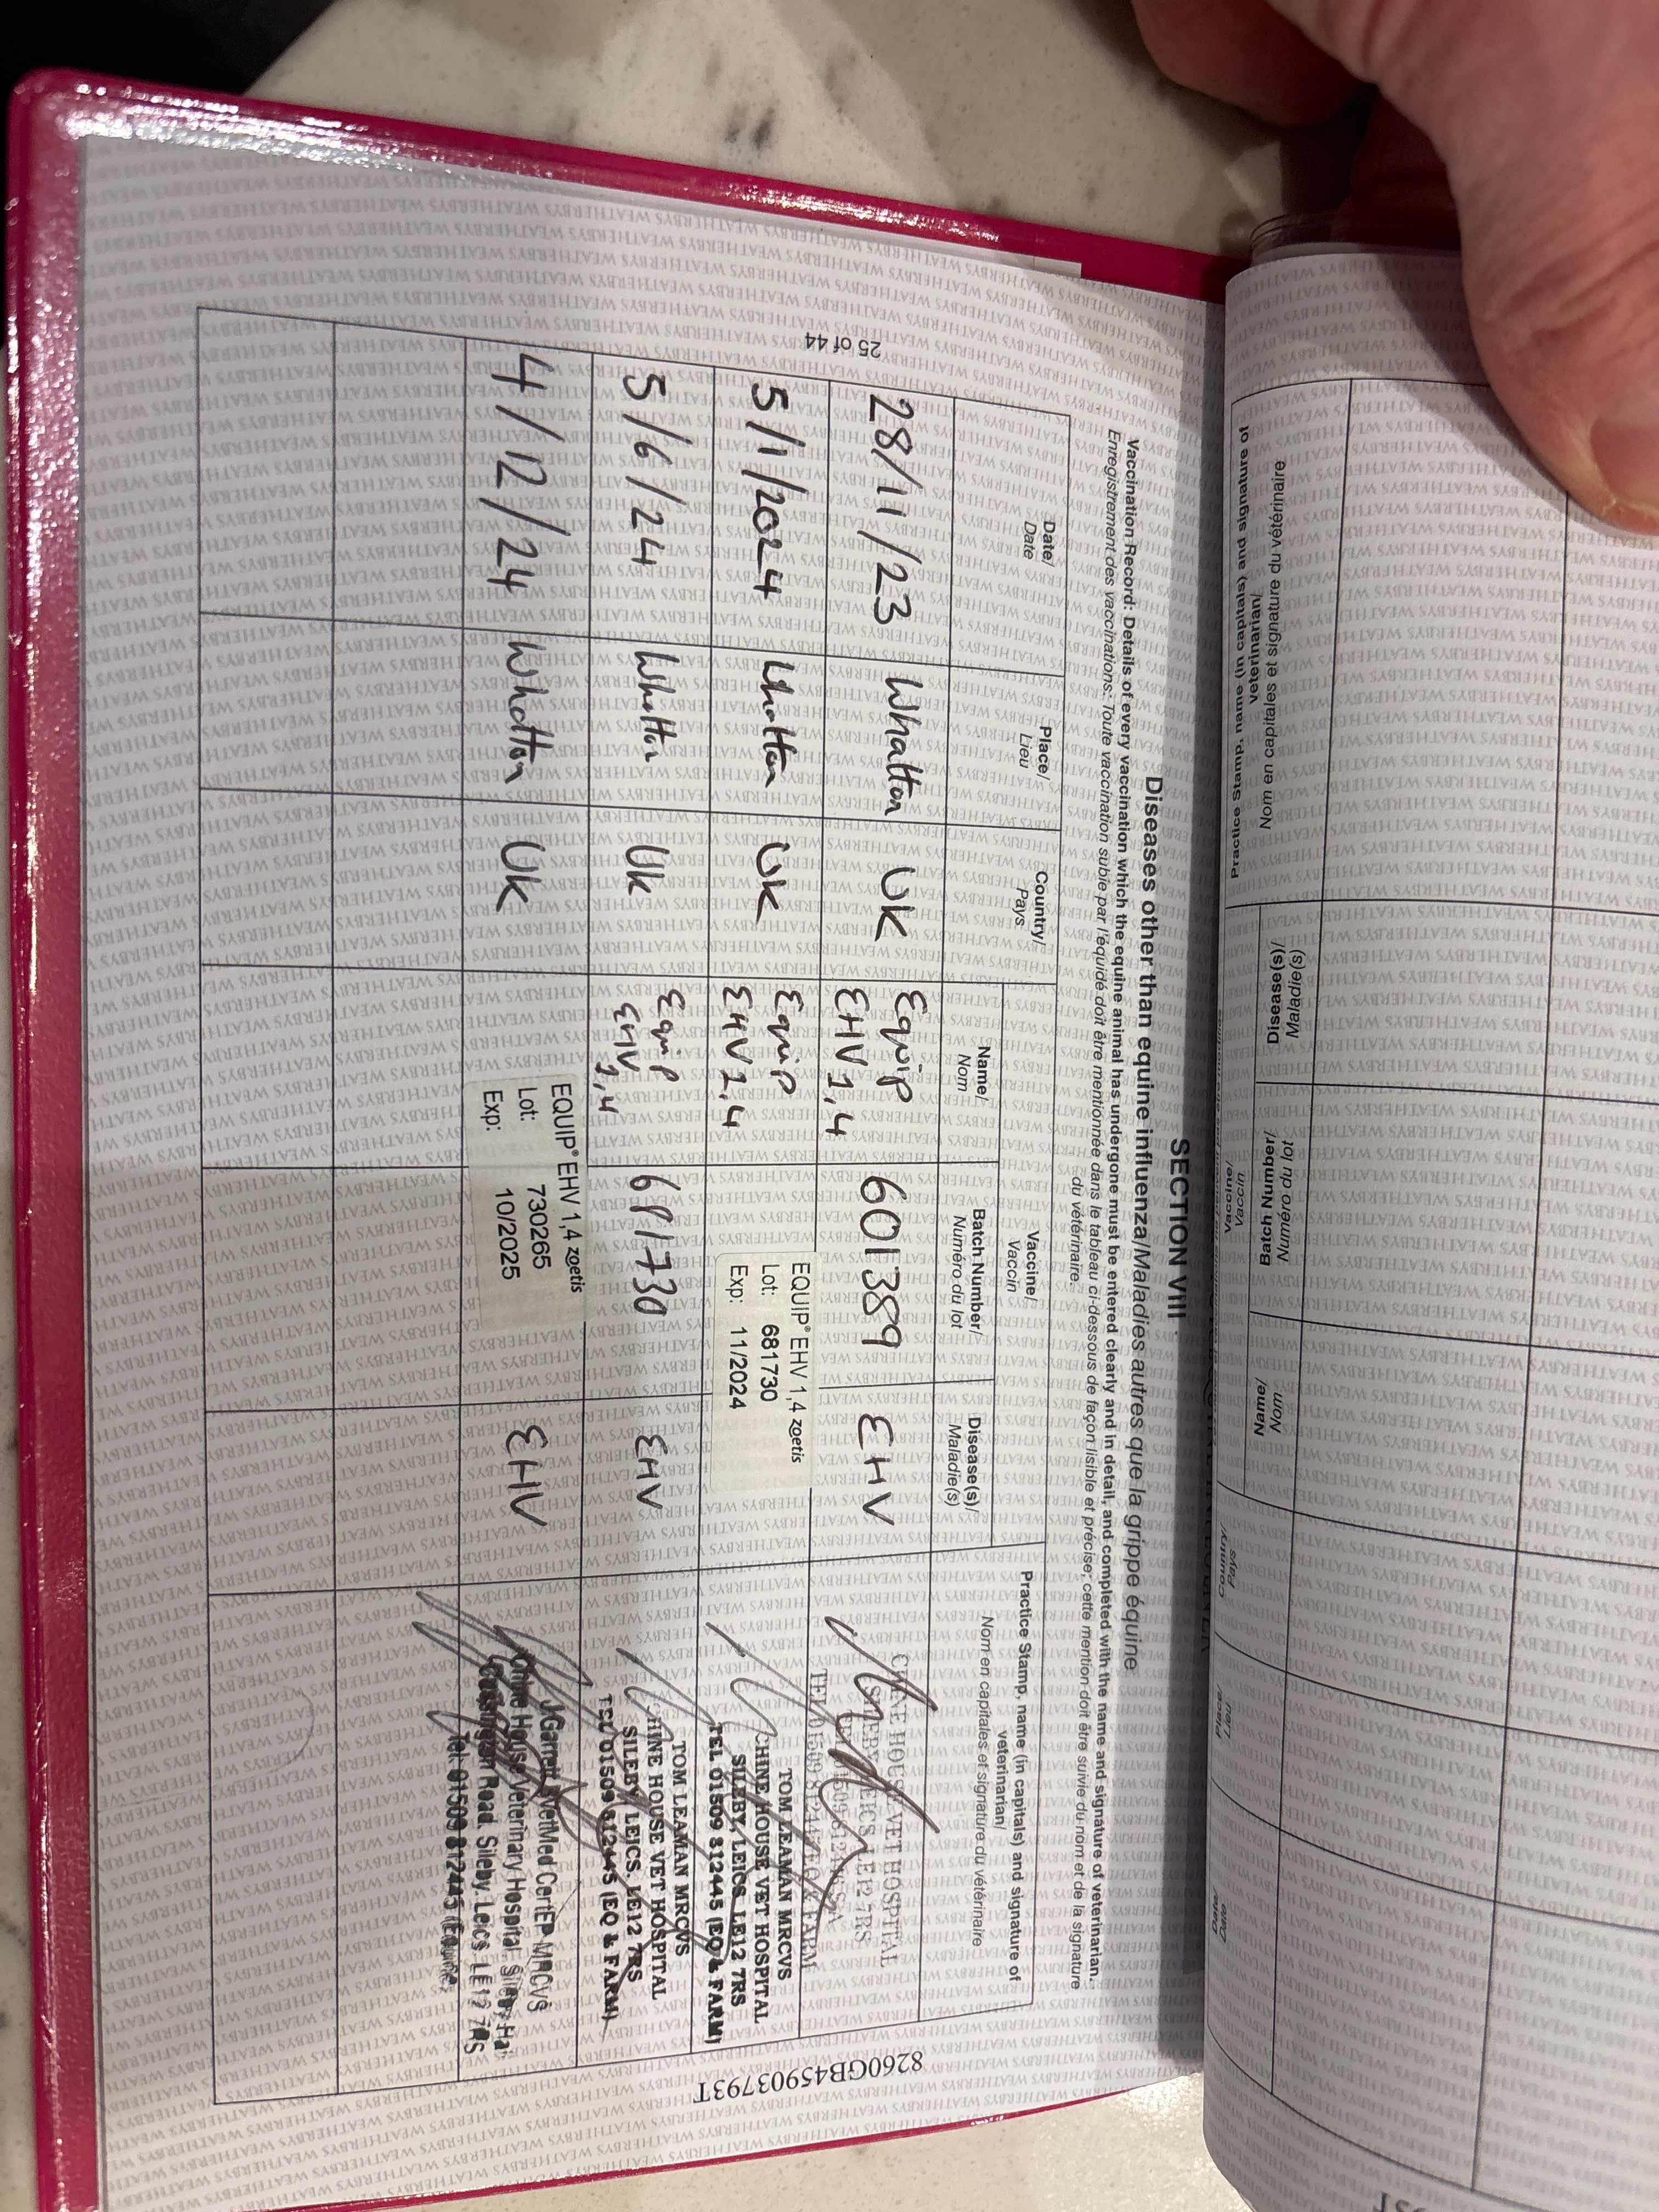 SECTION VIII
Diseases other than equine influenza/Maladies autres que la grippe équine
Vaccination Record: Details of every vaccination which the equine animal has undergone must be entered clearly and in detail, and completed with the name and signature of veterinarian.
Enregistrement des vaccinations: Toute vaccination subie par l'équidé doit être mentionnée dans le tableau ci-dessous de façon lisible et précise; cette mention doit être suivie du nom et de la signature
du vétérinaire.
Date/
Date
Place/
Lieu
Country/
Pays
Vaccine/
Vaccin
Name/
Nom
Batch Number/
Numéro du lot
Disease(s)/
Maladie(s)
Practice Stamp, name (in capitals) and signature of
veterinarian/
Nom en capitales et signature du vétérinaire
28/11/23 Whatton UK Equip
EHV 1,4 601389 EHV
VET HOSPITAL
5/1/2024 Whatton UK Equip
EHV 1,4
EQUIP® EHV 1,4 zoetis
Lot: 681730
Exp: 11/2024
TOM LEAMAN MRCVS
CHINE HOUSE VET HOSPITAL
SILEBY, LEICS LE12 7RS
TEL 01509 812445 (EQ & FARM)
5/6/24 Whatton UK Equip
EHV 1,4 681730 EHV
TOM LEAMAN MRCVS
CHINE HOUSE VET HOSPITAL
SILEBY LEICS, LE12 7RS
TEL 01509 812445 (EQ & FARM)
4/12/24 Whatton UK
EQUIP® EHV 1,4 zoetis
Lot: 730265
Exp: 10/2025
EHV
JGarnett BVetMed CertEP MRCVS
Chine House Veterinary Hospital Sileby Hall
Cossington Road, Sileby, Leics LE12 7RS
Tel: 01509 812445 (Equine)
25 of 44
8260GB45903793T
Practice Stamp, name (in capitals) and signature of
veterinarian/
Nom en capitales et signature du vétérinaire
Vaccine/
Vaccin
Disease(s)/
Maladie(s)
Batch Number/
Numéro du lot
Name/
Nom
Country/
Pays
Place/
Lieu
Date/
Date